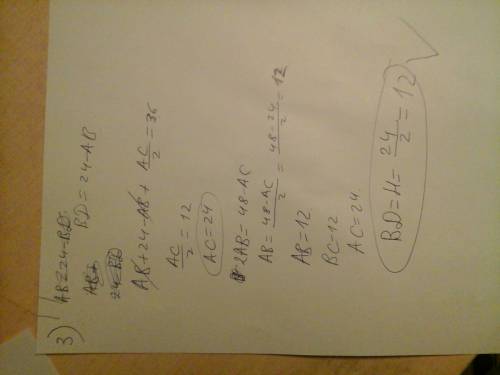 3) AB=24-BD
BD=24-AB
AB+24-AB+AC/2=36
AC/2=12
AC=24
2AB=48-AC
AB=48-AC/2=48-24/2=12
AB=12
BC=12
AC=24
BD=H=24/2=12